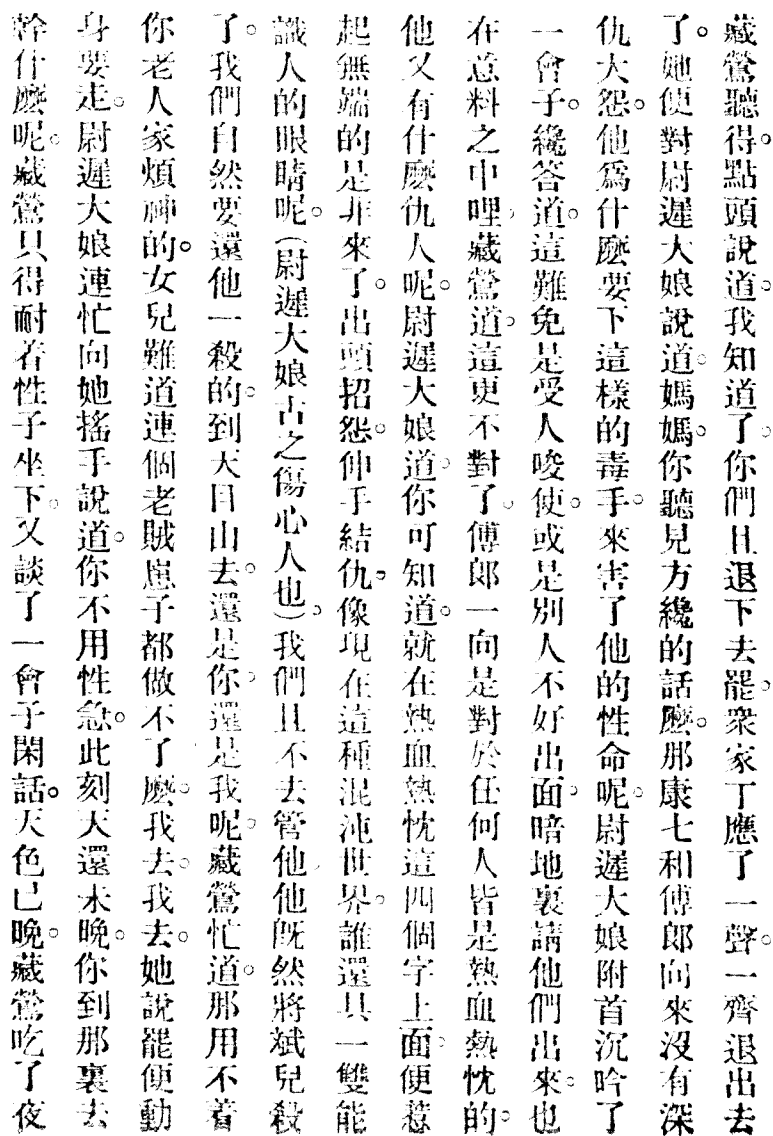 藏鶯聽得。點頭說道。我知道了。你們且退下去罷。衆家丁應了一聲。一齊退出去
了。她便對尉遲大娘說道。媽媽。你聽見方纔的話麼。那康七和傅郎向來沒有深
仇大怨。他爲什麼要下這樣的毒手。來害了他的性命呢。尉遲大娘附首沉吟了
一會子。纔答道。這難免是受人唆使。或是別人不好出面。暗地裏請他們出來。也
在意料之中哩。藏鶯道。這更不對了。傅郎一向是對於任何人皆是熱血熱忱的。
他又有什麼仇人呢。尉遲大娘道。你可知道。就在熱血熱忱這四個字上面。便惹
起無端的是非來了。出頭招怨。伸手結仇。像現在這種混沌世界。誰還具一雙能
識人的眼睛呢。(尉遲大娘古之傷心人也)。我們且不去管他。他既然將斌兒殺
了。我們自然要還他一殺的。到天目山去。還是你。還是我呢。藏鶯忙道。那用不着
你老人家煩神的。女兒難道連個老賊崽子都做不了麼。我去。我去。她說罷便動
身要走。尉遲大娘連忙向她搖手說道。你不用性急。此刻天還未晚。你到那裏去
幹什麼呢。藏鶯只得耐着性子坐下。又談了一會子閑話。天色已晚。藏鶯吃了夜